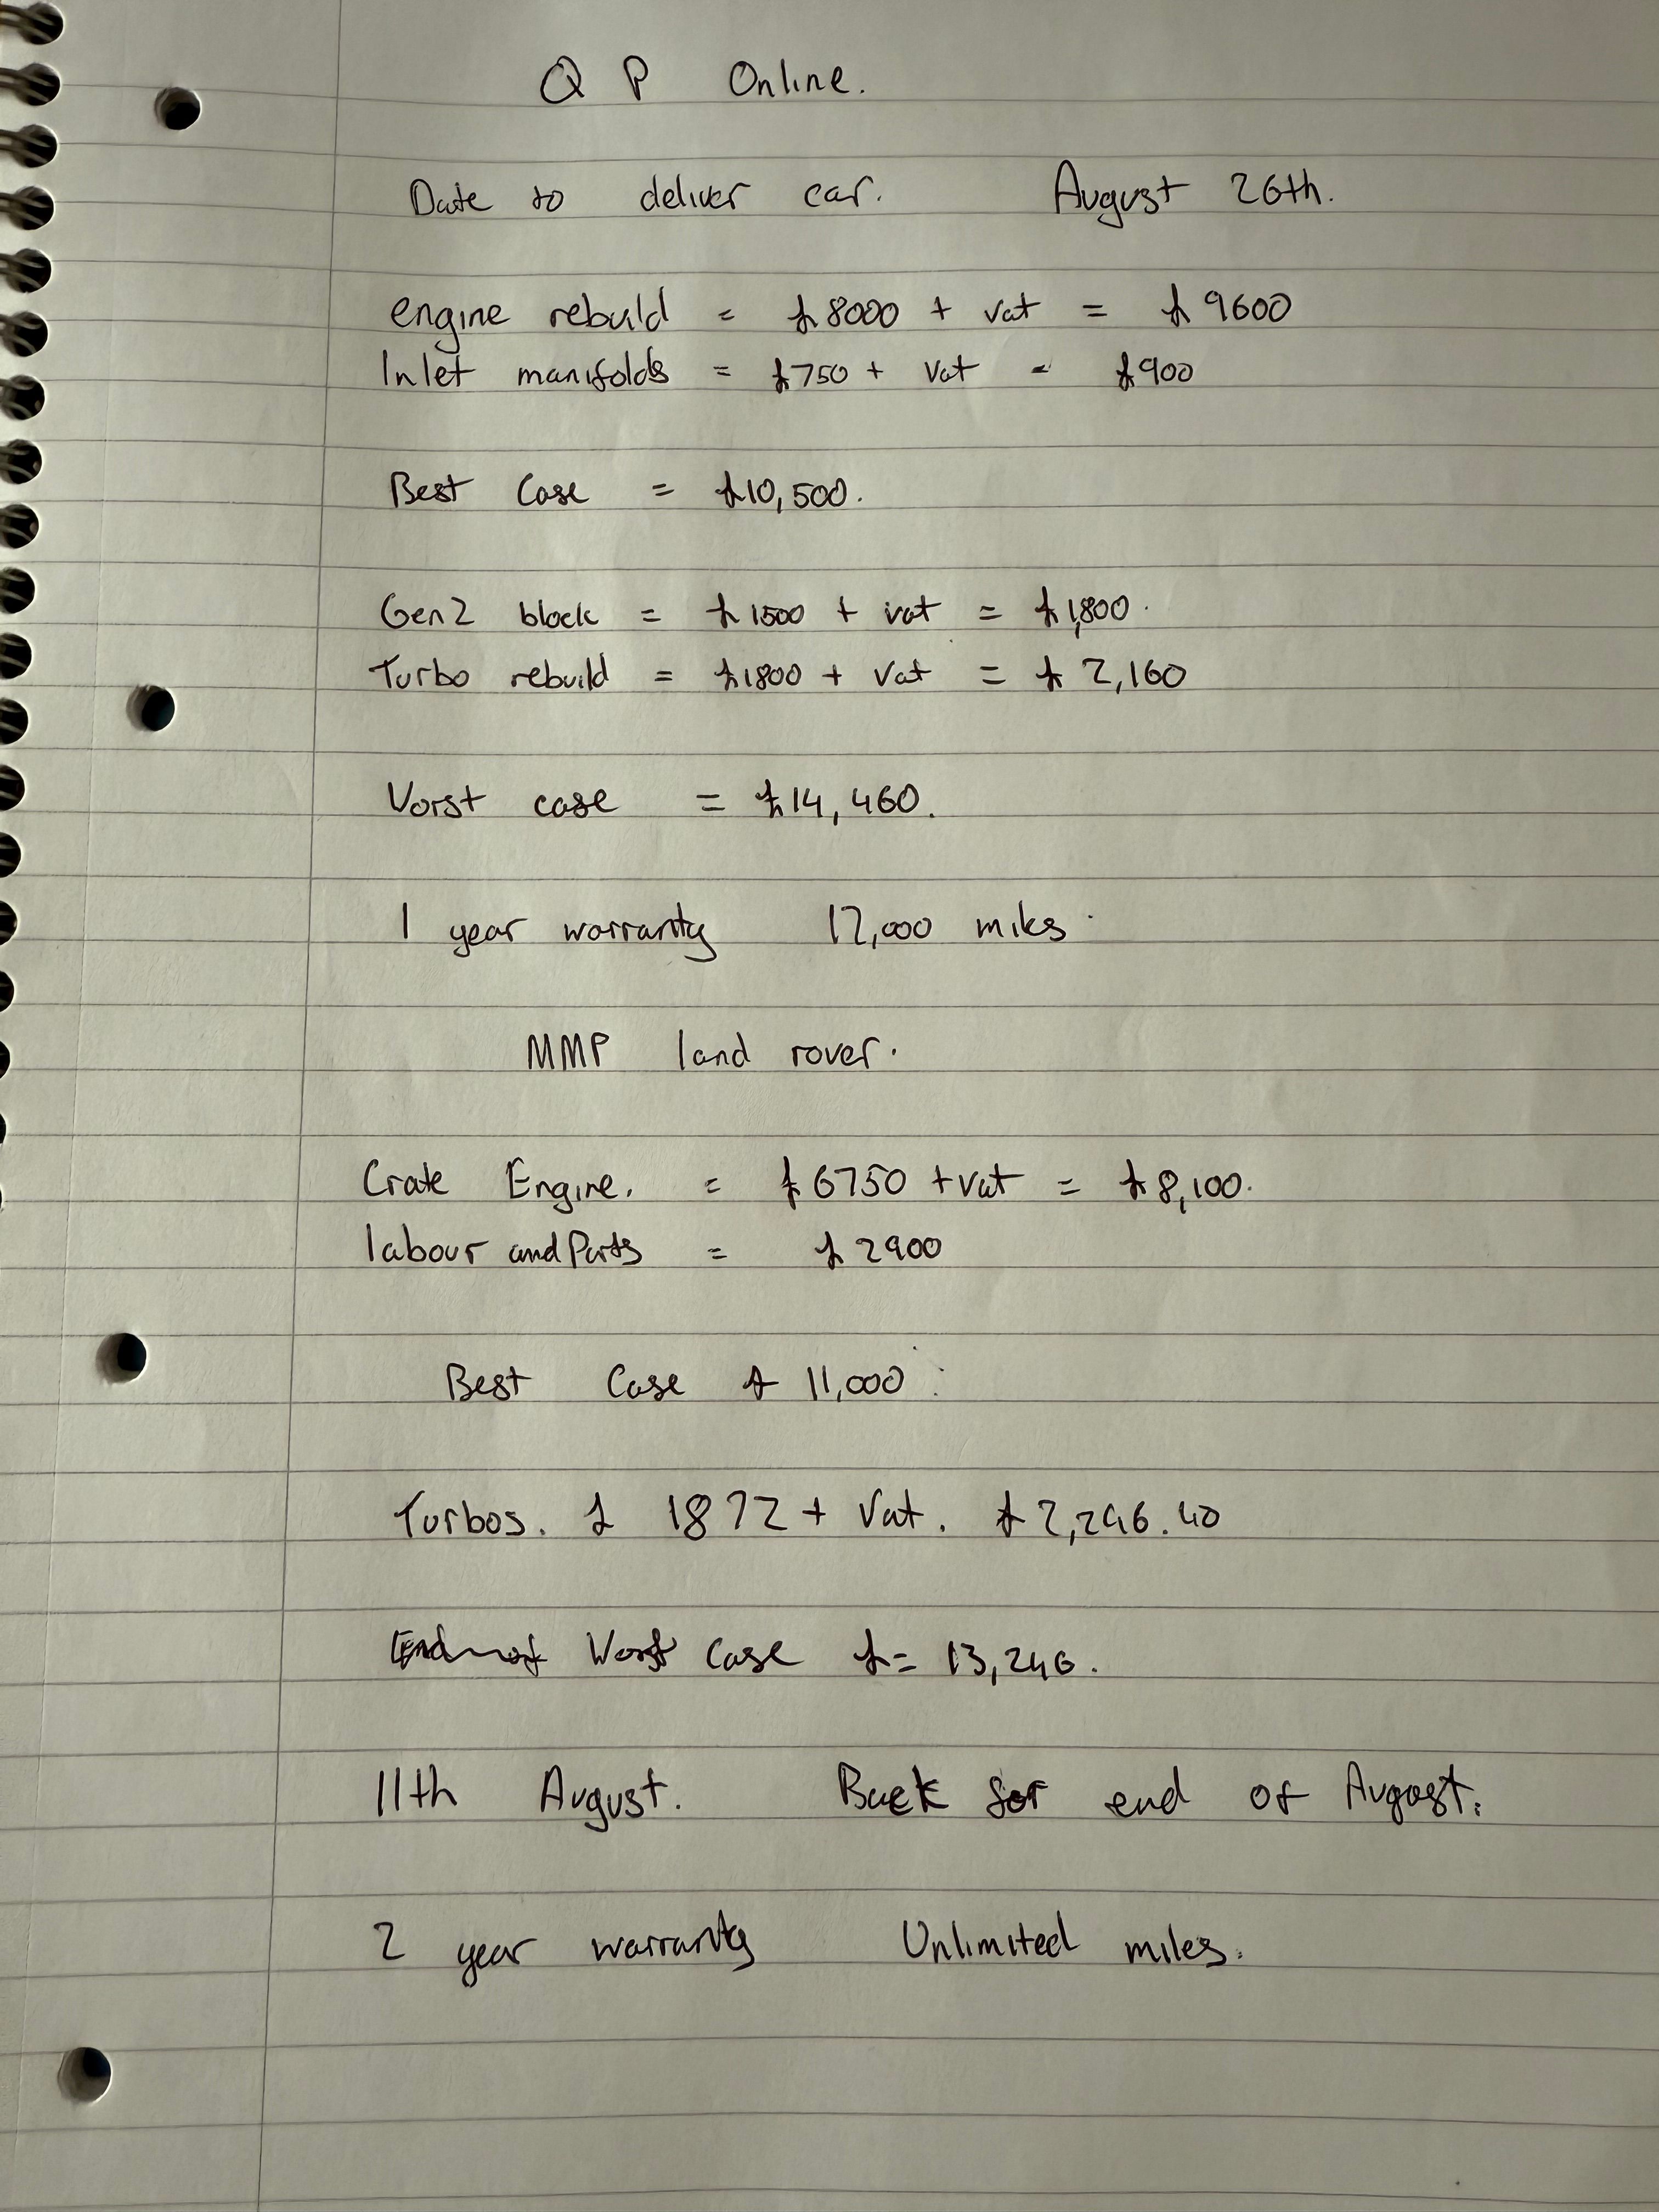 Q P Online.
Date to deliver car. August 26th.
engine rebuild = £8000 + vat = £9600
Inlet manifolds = £750 + vat = £900
Best Case = £10,500.
Gen2 block = £1500 + vat = £1,800.
Turbo rebuild = £1800 + vat = £2,160
Worst case = £14,460.
1 year warranty 12,000 miles.
MMP land rover.
Crate Engine. = £6750 + vat = £8,100.
labour and Parts = £2900
Best Case £11,000.
Turbos. £1872 + vat. £2,246.40
Worst Case £= 13,246.
11th August. Back for end of August.
2 year warranty Unlimited miles.